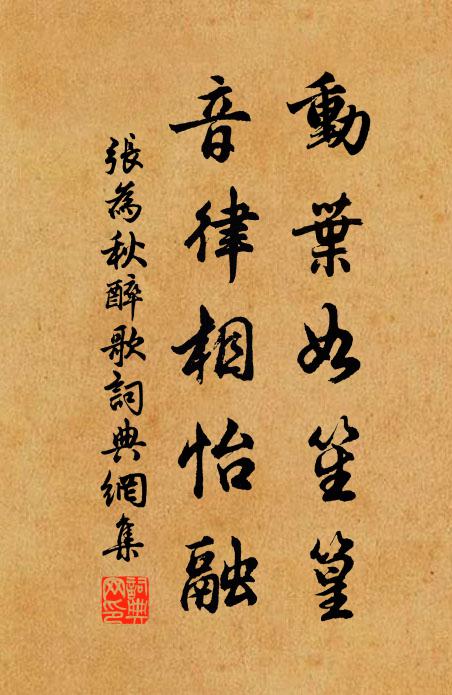 動葉如笙篁
音律相怡融
張為秋醉歌詞典網集
詞典
网印